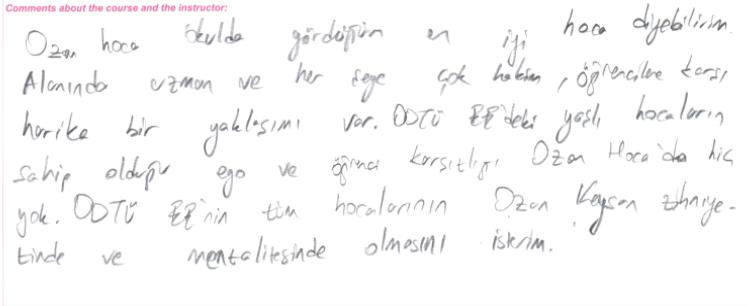 Comments about the course and the instructor:
Ozan hoca okulda gördüğüm en iyi hoca diyebilirim.
Alanında uzman ve her şeye çok hakim, öğrencilere karşı
harika bir yaklaşımı var. ODTÜ EE'deki yaşlı hocaların
sahip olduğu ego ve öğrenci karşıtlığı Ozan Hoca'da hiç
yok. ODTÜ EE'nin tüm hocalarının Ozan Keysan zihniye-
tinde ve mentalitesinde olmasını isterim.